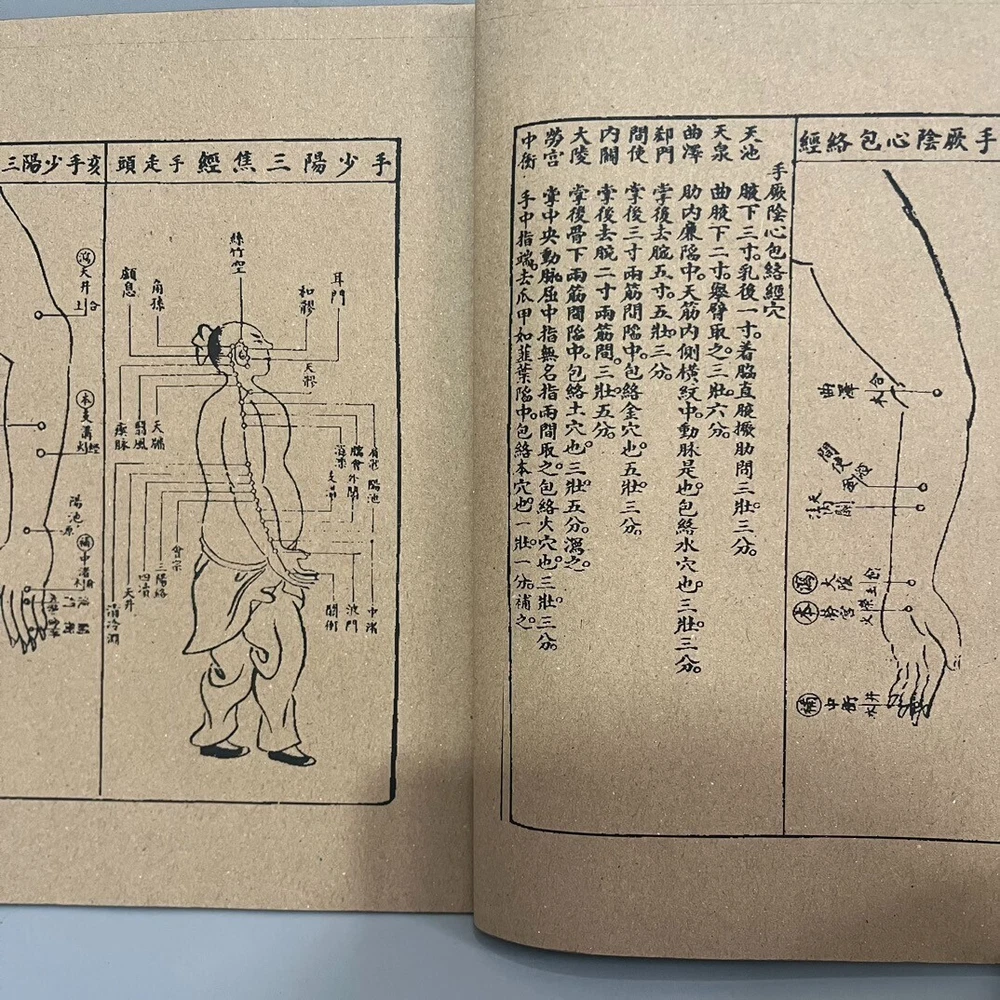 手厥陰心包絡經
曲澤
合水
間使
大陵
勞宮
中衝
井木
手厥陰心包絡經穴
天池 腋下三寸。乳後一寸。着脇直腋撅肋間三壯三分。
天泉 曲腋下二寸。舉臂取之。三壯六分。
曲澤 肋內廉陷中。天筋內側橫紋中。動脉是也。包絡水穴也。三壯三分。
郄門 掌後去腕五寸。五壯三分
間使 掌後三寸兩筋間陷中。包絡金穴也。五壯三分
內關 掌後去腕二寸兩筋間。三壯五分。
大陵 掌後骨下兩筋間陷中。包絡土穴也。三壯五分。瀉之。
勞宮 掌中央動脉。屈中指無名指兩間取之。包絡火穴也。三壯三分。
中衝 手中指端。去爪甲如韮葉陷中。包絡本穴也。一壯一分。補之。
手少陽三焦經 手走頭
耳門
和髎
絲竹空
角孫
顱息
天髎
天牖
翳風
瘈脉
肩髎
臑會
消濼
外關
陽池
支溝
會宗
三陽絡
四瀆
天井
清冷淵
中渚
液門
關衝
亥手少陽三
瀉 天井
合土
本 支溝
經火
陽池
原
補 中渚